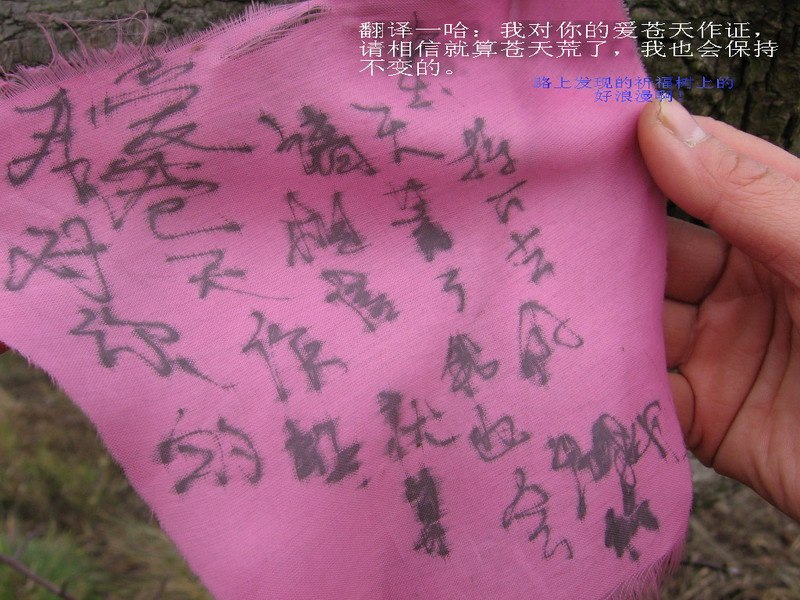 翻译一哈：我对你的爱苍天作证，
请相信就算苍天荒了，我也会保持
不变的。
路上发现的祈福树上的
好浪漫啊！
对你的
爱苍天作
请相信就算
天荒了我也会
去的